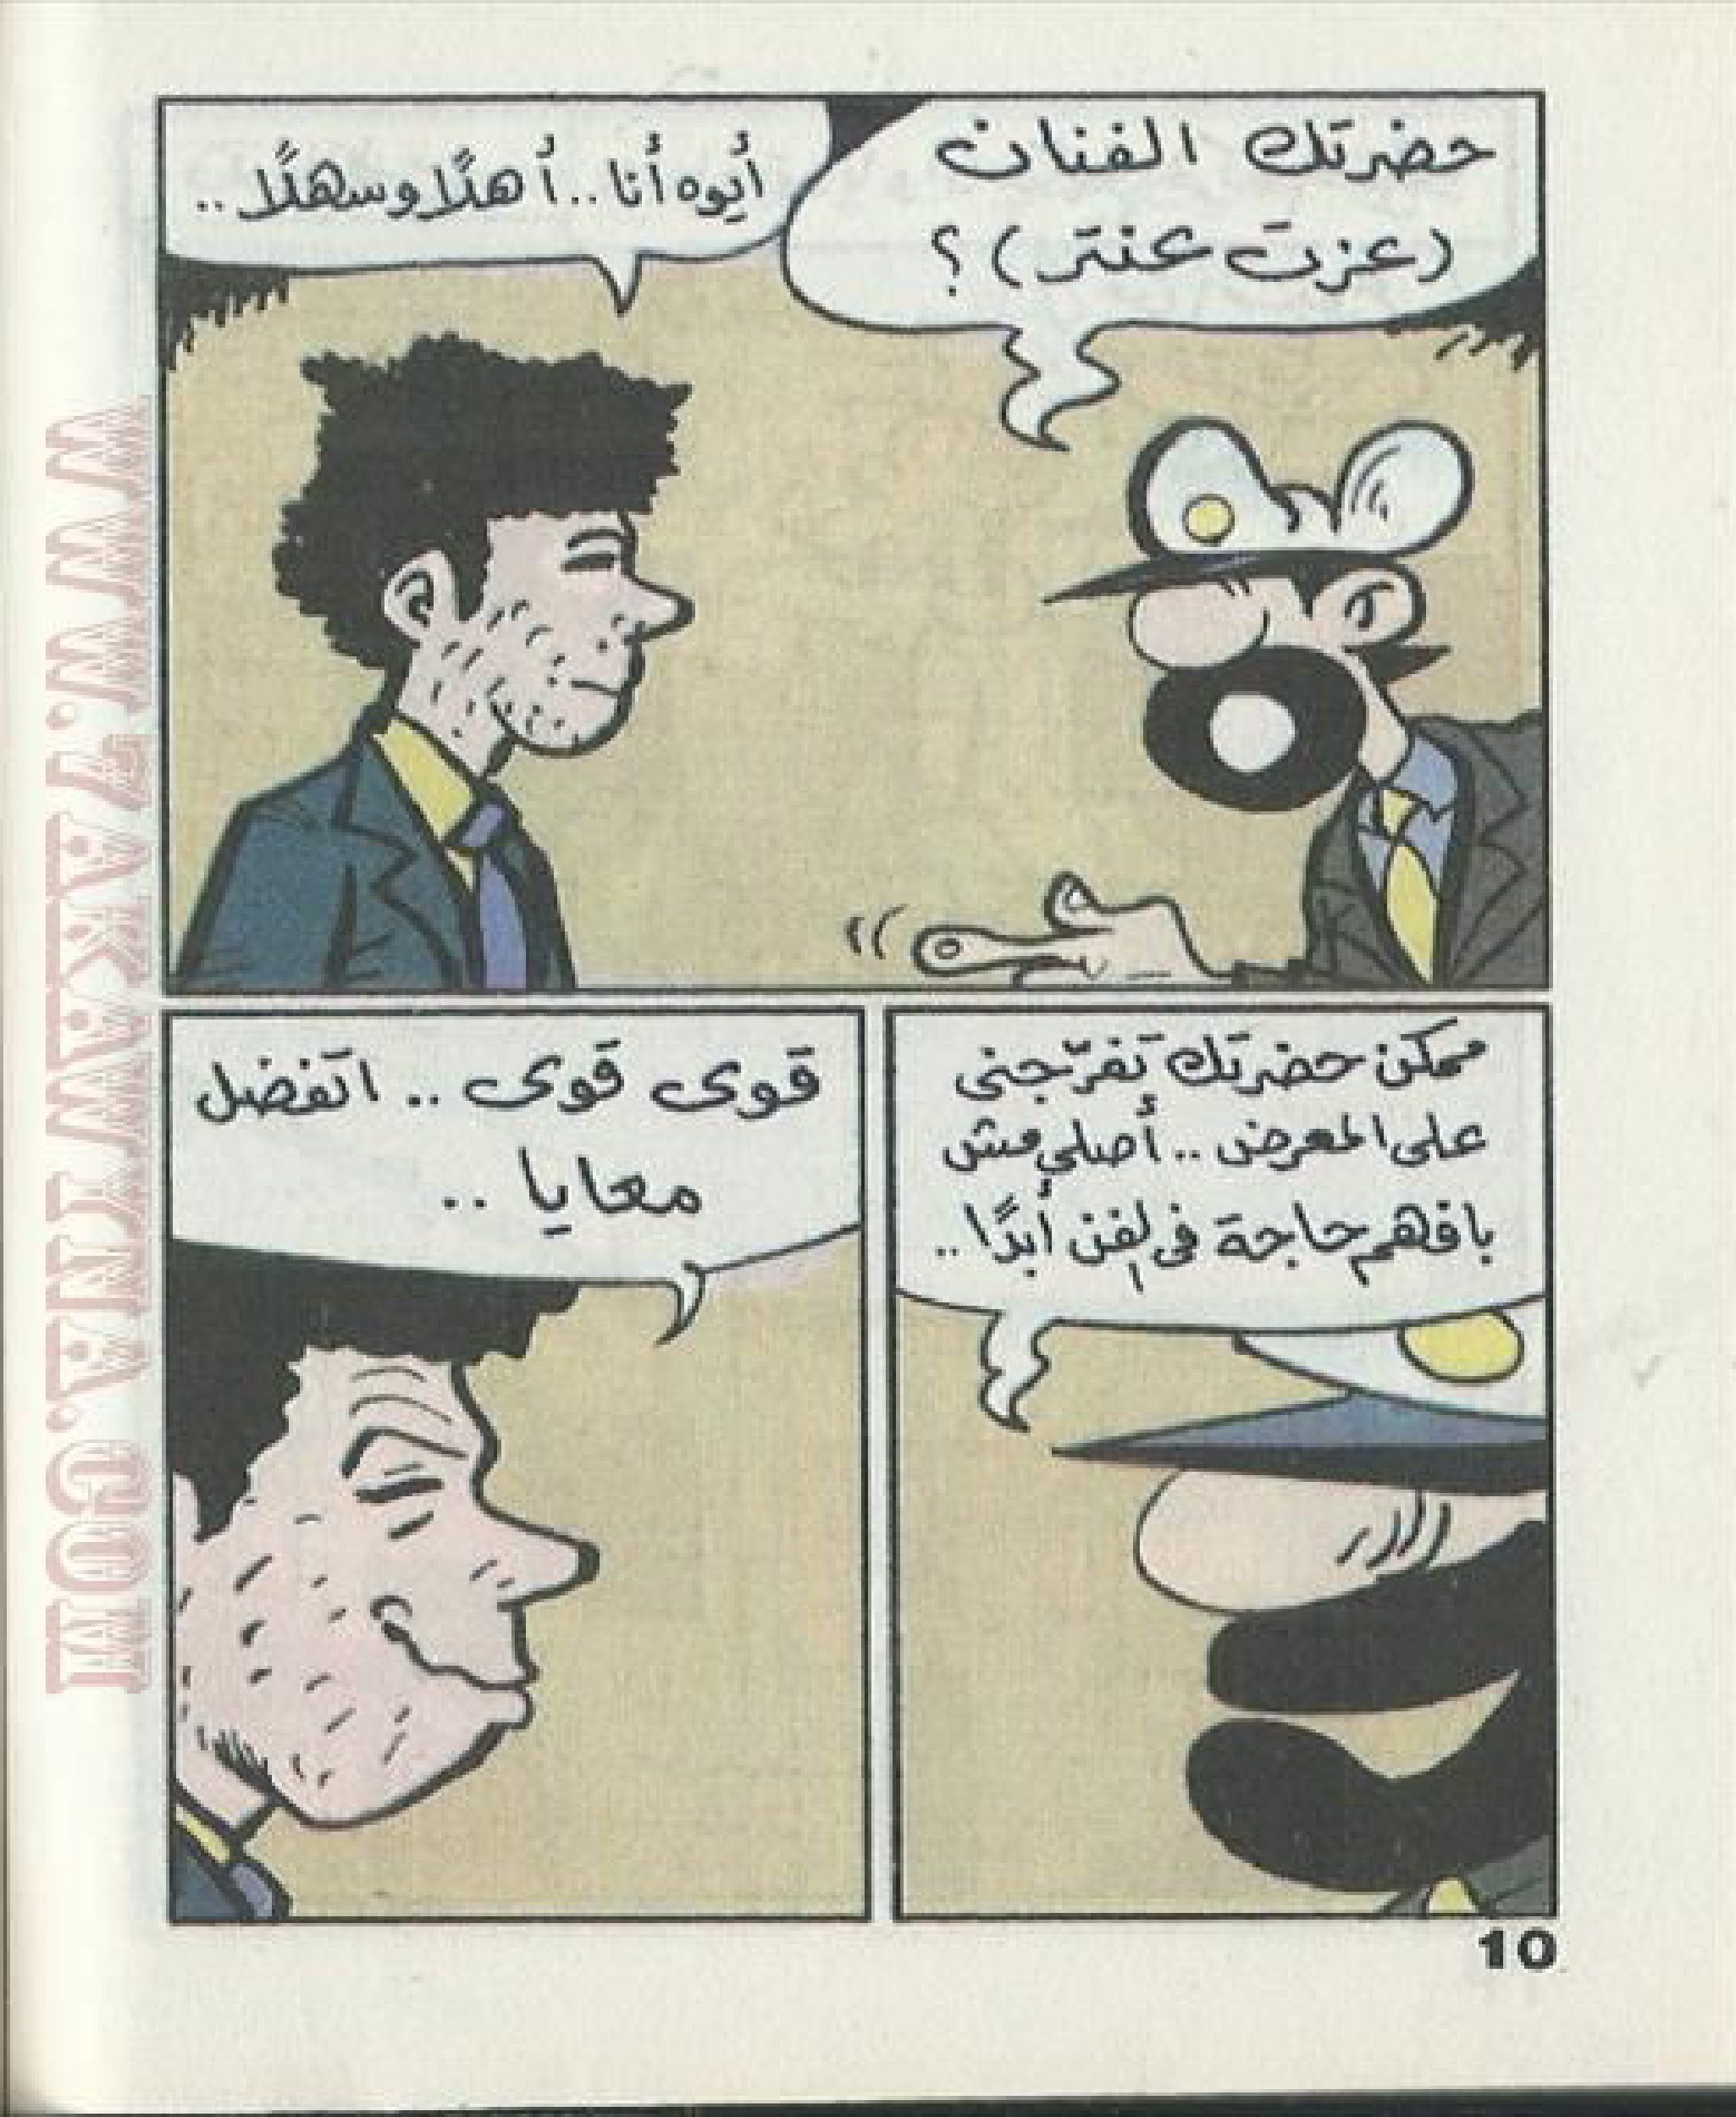 حضرتك الفنان
(عزت عنتر) ؟
أيوه أنا .. أهلًا وسهلًا ..
ممكن حضرتك تفرّجنى
على المعرض .. أصلي مش
بافهم حاجة فى الفن أبدًا ..
قوى قوى .. اتفضل
معايا ..
10
WWW.TAKAWTNA.COM